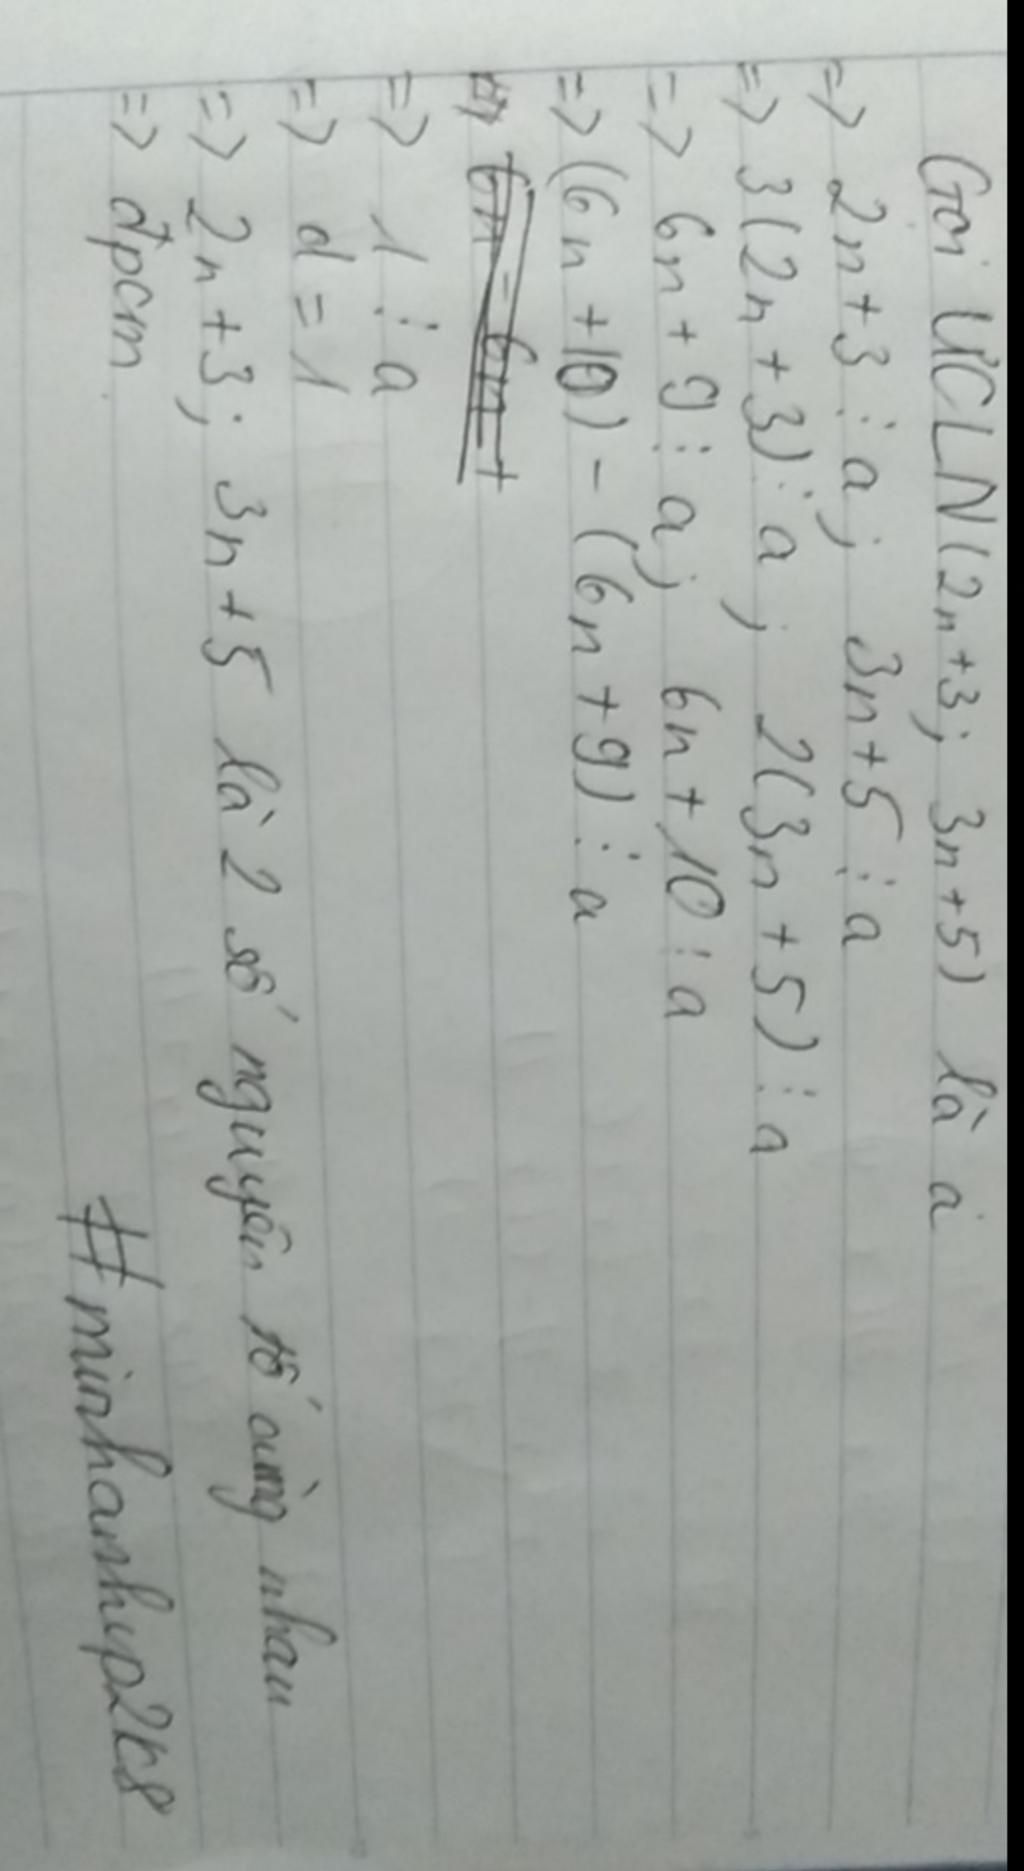 Gọi ƯCLN(2n+3; 3n+5) là a
=> 2n+3 ⋮ a; 3n+5 ⋮ a
=> 3(2n+3) ⋮ a; 2(3n+5) ⋮ a
=> 6n+9 ⋮ a; 6n+10 ⋮ a
=> (6n+10) - (6n+9) ⋮ a
=> 1 ⋮ a
=> d = 1
=> 2n+3; 3n+5 là 2 số nguyên tố cùng nhau
=> đpcm
#minhanhvp2k8